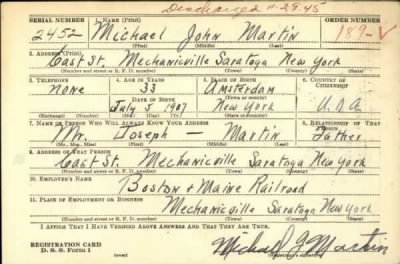 Discharged 11-29-45
SERIAL NUMBER 1. NAME (Print) ORDER NUMBER
2452 Michael John Martin 189-V
(First) (Middle) (Last)
2. ADDRESS (Print)
East St. Mechanicville Saratoga New York
(Number and street or R. F. D. number) (Town) (County) (State)
3. TELEPHONE 4. AGE IN YEARS 5. PLACE OF BIRTH 6. COUNTRY OF CITIZENSHIP
none 33 Amsterdam
DATE OF BIRTH (Town or county)
July 5 1907 New York U.S.A
(Exchange) (No.) (Mo.) (Day) (Yr.) (State or country)
7. NAME OF PERSON WHO WILL ALWAYS KNOW YOUR ADDRESS 8. RELATIONSHIP OF THAT PERSON
Mr. Joseph — Martin Father
(Mr., Mrs., Miss) (First) (Middle) (Last)
9. ADDRESS OF THAT PERSON
East St. Mechanicville Saratoga New York
(Number and street or R. F. D. number) (Town) (County) (State)
10. EMPLOYER'S NAME
Boston & Maine Railroad
11. PLACE OF EMPLOYMENT OR BUSINESS
Mechanicville Saratoga New York
(Number and street or R. F. D. number) (Town) (County) (State)
I AFFIRM THAT I HAVE VERIFIED ABOVE ANSWERS AND THAT THEY ARE TRUE.
REGISTRATION CARD
D. S. S. Form 1 (over) Michael J Martin
(Registrant's signature)